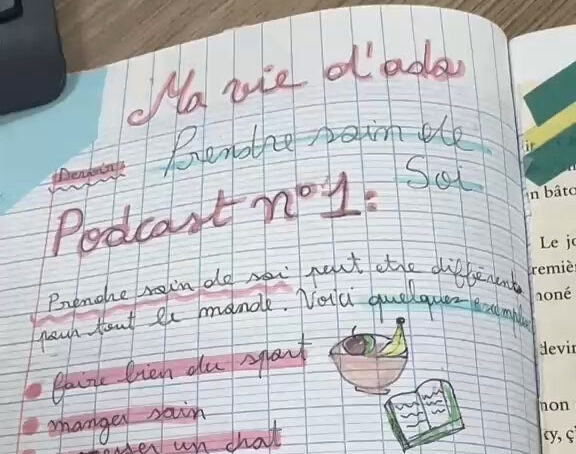 Ma vie d'ado
Prendre soin de
Soi
Dessins
Podcast n°1:
Prendre soin de soi peut etre différents
pour tout le monde. Voici quelques exemples
faire bien du sport
manger sain
un chat
n bâto
Le je
remièr
noné
devin
non
cy, ç'